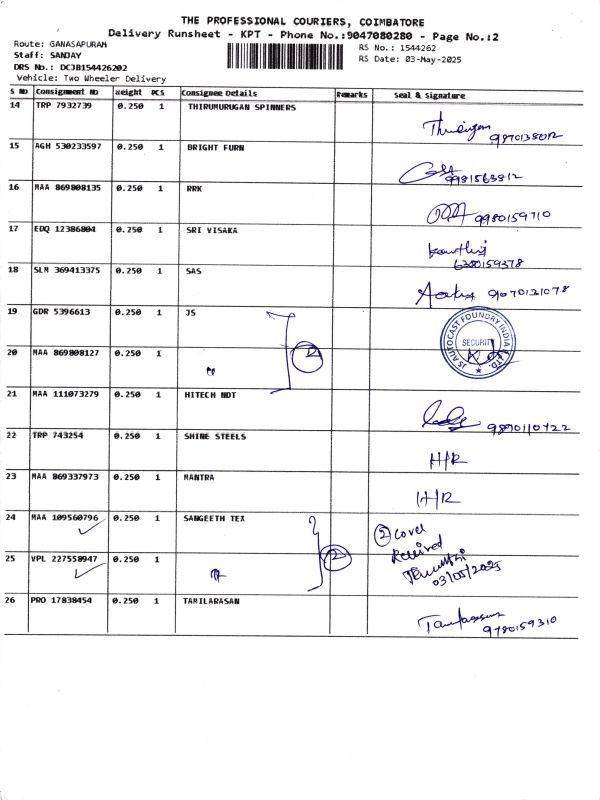 THE PROFESSIONAL COURIERS, COIMBATORE
Delivery Runsheet - KPT - Phone No.:9047080280 - Page No.:2
Route: GANASAPURAM
RS No.: 1544262
Staff: SANJAY
RS Date: 03-May-2025
DRS No.: DCJB154426202
Vehicle: Two Wheeler Delivery
S No Consignment No Weight PCS Consignee Details Remarks Seal & Signature
14 TRP 7932739 0.250 1 THIRUMURUGAN SPINNERS
15 AGH 530233597 0.250 1 BRIGHT FURN
9981563812
16 MAA 869808135 0.250 1 RRK
9980159710
17 EDQ 12386804 0.250 1 SRI VISAKA
6380159378
18 SLM 369413375 0.250 1 SAS
9070121078
19 GDR 5396613 0.250 1 JS
JS AUTOCAST FOUNDRY INDIA LTD.
SECURITY
20 MAA 869808127 0.250 1
2
21 MAA 111073279 0.250 1 HITECH NDT
9890110722
22 TRP 743254 0.250 1 SHINE STEELS
H/R
23 MAA 869337973 0.250 1 MANTRA
H/R
24 MAA 109560796 0.250 1 SANGEETH TEX
2 Cover
Received
25 VPL 227558947 0.250 1
2
03/05/2025
26 PRO 17838454 0.250 1 TAMILARASAN
9780159310